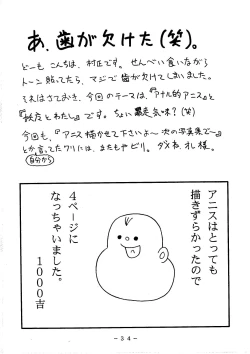 あ、歯が欠けた(笑)。
どーも こんちは、村正です。せんべい食いながら
トーン貼ってたら、マジで歯が欠けてしまいました。
それはさておき、今回のテーマは、『アナル的アニス』と
『秩序とわたし』です。ちょい暴走気味?(笑)
今回も、『アニス描かせて下さいよ〜次の写真集で〜』
とか言ってたワリには、またもやビリ。ダメね、オレ様。
(自分から)
アニスはとっても
描きずらかったので
4ページに
なっちゃいました。
1000吉
-34-